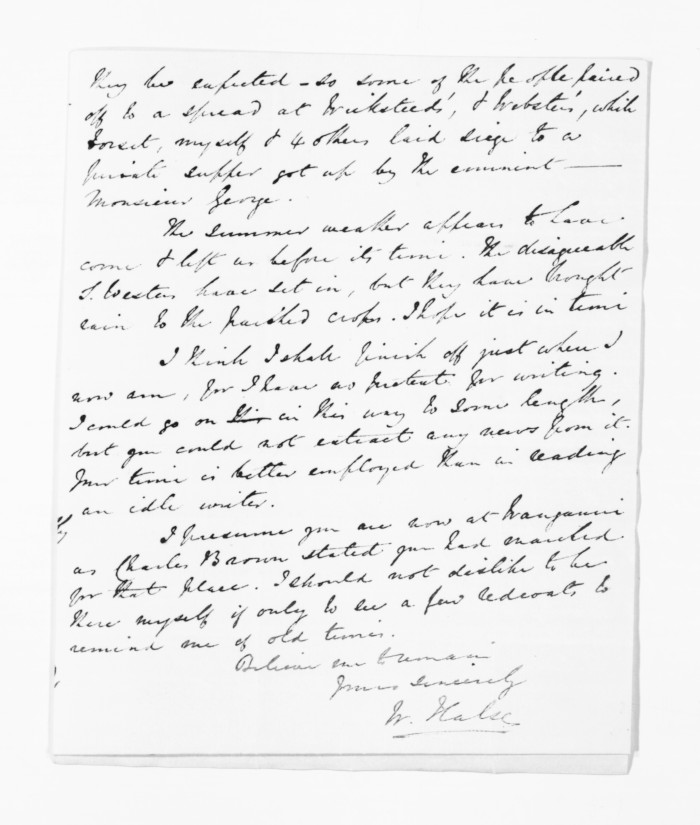 they be expected - so some of the people paired
off to a spread at Wicksteeds', & Websters', while
Dorset, myself & 4 others laid siege to a
private supper got up by the eminent —
Monsieur George.
The summer weather appears to have
come & left us before its time. The disagreeable
S. Westers have set in, but they have brought
rain to the parched crops. I hope it is in time
I think I shall finish off just where I
now am, for I have no pretext for writing.
I could go on in this way to some length,
but you could not extract any news from it.
Your time is better employed than in reading
an idle writer.
I presume you are now at Wanganui
as Charles Brown stated you had marched
for that place. I should not dislike to be
there myself if only to see a few redcoats to
remind me of old times.
Believe me to remain
Yours sincerely
W. Halse